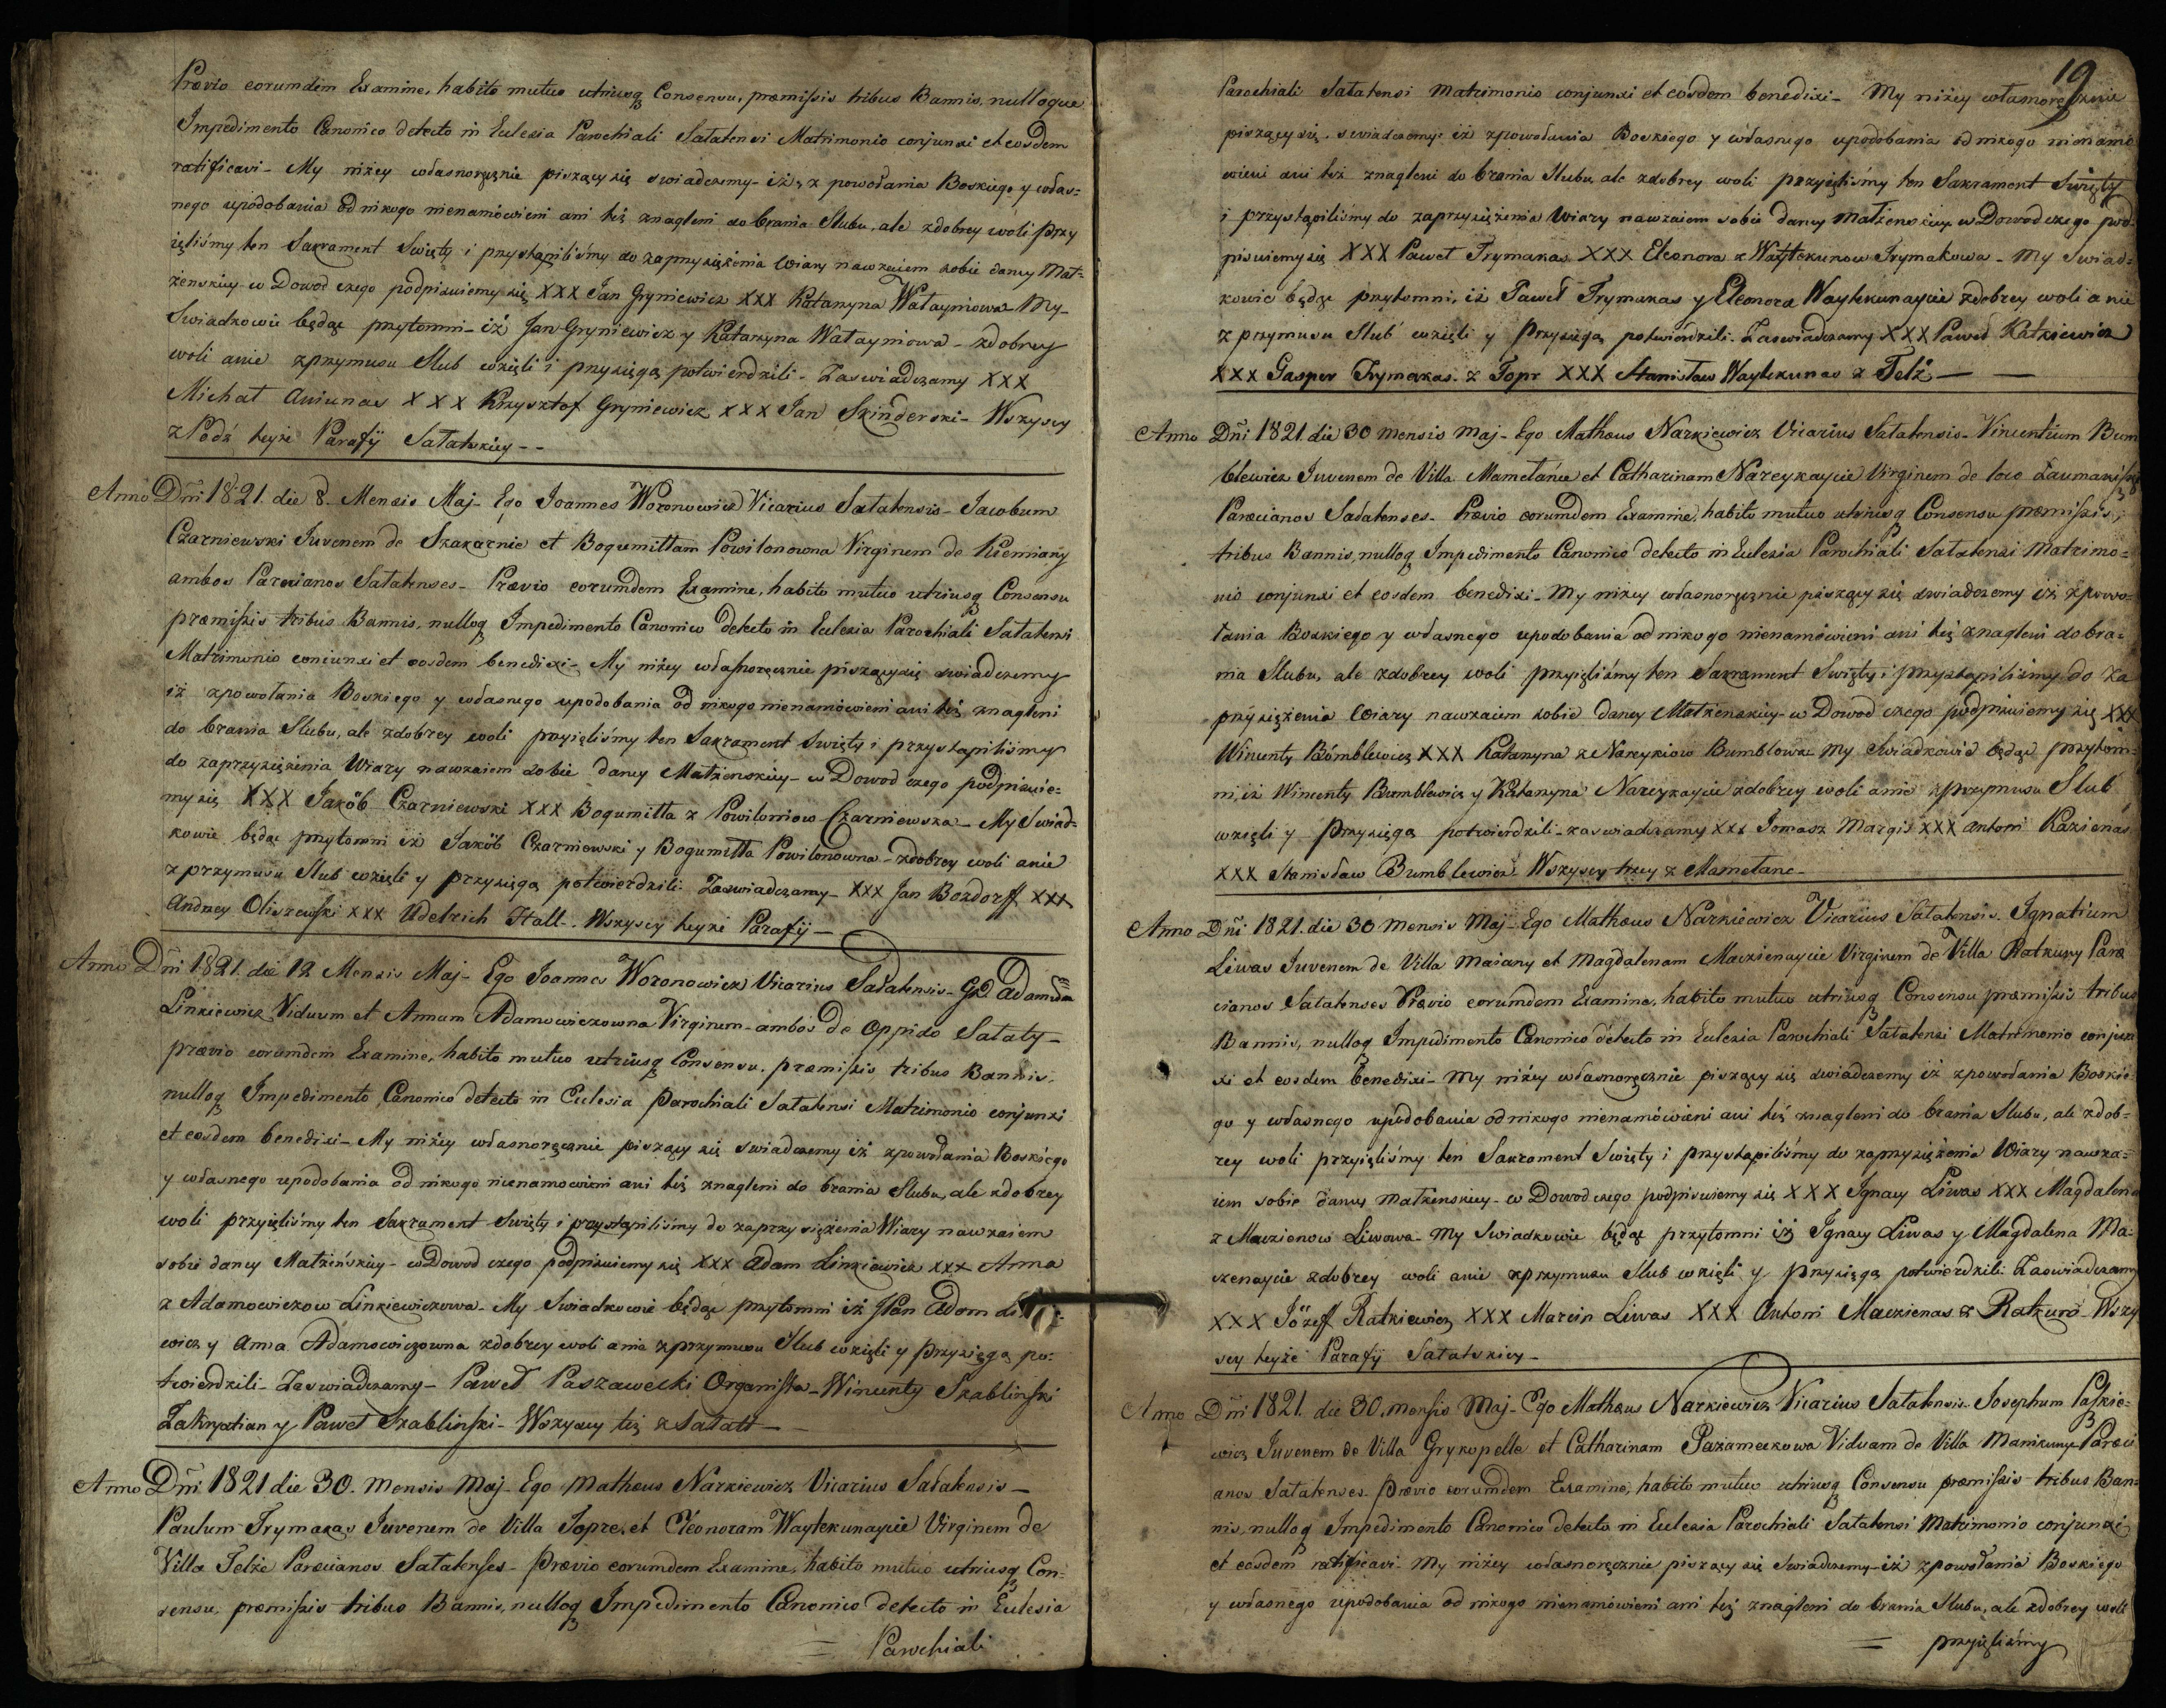 Prævio eorumdem Examine, habito mutuo utriusq Consensu, præmissis tribus Bannis, nulloque
Impedimento Canonico detecto in Eclesia Parochiali Sałatensi Matrimonio conjunxi et eosdem
ratificavi - My niżey własnoręcznie piszący się swiadczemy - iż, z powołania Boskiego y włas=
nego upodobania od nikogo nienamówieni ani też znagleni do brania Slubu, ale zdobrey woli przy
ięliśmy ten Sakrament Swięty i przystąpiliśmy do zaprzysiężenia Wiary nawzaiem sobie daney Mał=
żenskiey - w Dowod czego podpisuiemy się XXX Jan Gryniewicz XXX Katarzyna Watayniowa - My
Swiadkowie będąc przytomni - iż Jan Gryniewicz y Katarzyna Watayniowa - zdobrey
woli anie zprzymusu Slub wzięli i przysięgą potwierdzili - Zaswiadczamy XXX
Michał Aviunas XXX Krzysztof Gryniewicz XXX Jan Skinderski - Wszyscy
z Podź teyże Parafij Sałatskiey - -
Anno Dñi 1821. die 8. Mensis Maj - Ego Joannes Woronowicz Vicarius Sałatensis - Jacobum
Czarniewski Juvenem de Szakarnie et Bogumiłłam Powilonowna Virginem de Kiemiany
ambos Parœcianos Sałatenses - Prævio eorumdem Examine, habito mutuo utriusq Consensu
præmissis tribus Bannis, nulloq Impedimento Canonico detecto in Eclesia Parochiali Sałatensi
Matrimonio coniunxi et eosdem benedixi - My niżey własnoręcznie piszący się swiadczemy
iż zpowołania Boskiego y własnego upodobania od nikogo nienamówieni ani też znagleni
do brania Slubu, ale zdobrey woli przyięliśmy ten Sakrament Swięty i przystąpiliśmy
do zaprzysiężenia Wiary nawzaiem sobie daney Małżenskiey - w Dowod czego podpisuie=
my się XXX Jakób Czarniewski XXX Bogumiłła z Powiloniow Czarniewska - My Swiad=
kowie będąc przytomni iż Jakób Czarniewski y Bogumiłła Powilonowna - zdobrey woli anie
z przymusu Slub wzięli y przysięgą potwierdzili. Zaswiadczamy - XXX Jan Bozdorff XXX
Andrzey Oliszewski XXX Udelrich Hall - . Wszyscy teyże Parafij -
Anno Dñi 1821. die 12 Mensis Maj - Ego Joannes Woronowicz Vicarius Sałatensis - GD Adamum
Linkiewicz Viduum et Annam Adamowiczowna Virginem - ambos de Oppido Sałaty -
prævio eorumdem Examine, habito mutuo utriusq Consensu. præmissis tribus Bannis,
nulloq Impedimento Canonico detecto in Eclesia Parochiali Sałatensi Matrimonio conjunxi
et eosdem benedixi - My niżey własnoręcznie piszący się swiadczemy iż zpowołania Boskiego
y własnego upodobania od nikogo nienamowieni ani też znagleni do brania Slubu, ale zdobrey
woli przyięliśmy ten Sakrament Swięty i przystąpiliśmy do zaprzysiężenia Wiary nawzaiem
sobie daney Małżeńskiey - w Dowod czego podpisuiemy się XXX Adam Linkiewicz XXX Anna
z Adamowiczow Linkiewiczowa - My Swiadkowie będąc przytomni iż JPan Adam
wicz y Anna Adamowiczowna zdobrey woli anie zprzymusu Slub wzięli y przysięgą po=
twierdzili - Zaswiadczamy - Paweł Paszawecki Organista - Wincenty Szablinski
Zakrystian y Paweł Szablinski - Wszyscy też z Sałatt -
Anno Dñi 1821 die 30. Mensis Maj - Ego Matheus Narkiewicz Vicarius Sałatensis -
Paulum Trymakas Juvenem de Villa Topre, et Eleonoram Waytekunaycie Virginem de
Villa Telże Parœcianos Sałatenses - Prævio eorumdem Examine, habito mutuo utriusq Con=
sensu, præmissis tribus Bannis, nulloq Impedimento Canonico detecto in Eclesia
= Parochiali
19
Parochiali Sałatensi Matrimonio conjunxi et eosdem benedixi - My niżey własnoręcznie
piszący się. swiadczemy iż zpowołania Boskiego y własnego upodobania od nikogo nienamó
wieni ani też znagleni do brania Slubu, ale zdobrey woli przyięliśmy ten Sakrament Swięty
i przystąpiliśmy do zaprzysiężenia Wiary nawzaiem sobie daney Małżenskiey w Dowod czego pod=
pisuiemy się XXX Paweł Trymakas XXX Eleonora z Waytekunow Trymakowa - My Swiad=
kowie będąc przytomni, iż Paweł Trymakas y Eleonora Waytekunaycie zdobrey woli a nie
z przymusu Slub wzięli y przysięgą potwierdzili. Zaswiadczamy XXX Paweł Ratkiewicz
XXX Gasper Trymakas z Topr XXX Stanisław Waytekunas z Telż - -
Anno Dñi 1821. die 30 Mensis Maj - Ego Matheus Narkiewicz Vicarius Sałatensis - Vincentium Bum
blewicz Juvenem de Villa Mamełańce et Catharinam Nareykaycie Virginem de loco
Parœcianos Sałatenses - Prævio eorumdem Examine, habito mutuo utriusq Consensu præmissis,
tribus Bannis, nulloq Impedimento Canonico detecto in Eclesia Parochiali Sałatensi Matrimo=
nio conjunxi et eosdem benedixi - My niżey własnoręcznie piszący się swiadczemy iż zpowo=
łania Boskiego y własnego upodobania od nikogo nienamówieni ani też znagleni do bra=
nia Slubu, ale zdobrey woli przyięliśmy ten Sakrament Swięty i przystąpiliśmy do za
przysiężenia Wiary nawzaiem sobie daney Małżenskiey - w Dowod czego podpisuiemy się XXX
Wincenty Bómblewicz XXX Katarzyna z Nareykiow Bumblowska My Swiadkowie będąc przytom=
ni, iż Wincenty Bumblewicz y Katarzyna Nareykaycie zdobrey woli anie zprzymusu Slub
wzięli y przysięgą potwierdzili - zaswiadczamy XXX Tomasz Margis XXX Antoni Kazienas
XXX Stanisław Bumblewicz Wszyscy trzey z Mamełanc -
Anno Dñi 1821. die 30 Mensis Maj - Ego Matheus Narkiewicz Vicarius Sałatensis. Ignatium
Liwas Juvenem de Villa Maiany et Magdalenam Maczienaycie Virginem de Villa Ratkuny Paræ
cianos Sałatenses Prævio eorumdem Examine, habito mutuo utriusq Consensu præmissis tribus
Bannis, nulloq Impedimento Canonico detecto in Eclesia Parochiali Sałatensi Matrimonio conjun
xi et eosdem benedixi - My niżey własnoręcznie piszący się swiadczemy iż zpowołania Boskie=
go y własnego upodobania od nikogo nienamówieni ani też znagleni do brania Slubu, ale zdob=
rey woli przyięliśmy ten Sakrament Swięty i przystąpiliśmy do zaprzysiężenia Wiary nawza=
iem sobie daney Małżenskiey - w Dowod czego podpisuiemy się XXX Ignacy Liwas XXX Magdalena
z Maczienow Liwowa - My Swiadkowie będąc przytomni iż Ignacy Liwas y Magdalena Ma=
czenaycie zdobrey woli anie zprzymusu Slub wzięli y przysięgą potwierdzili Zaswiadczamy
XXX Józeff Ratkiewicz XXX Marcin Liwas XXX Antoni Maczienas z Ratkun - Wszy
scy teyże Parafij Sałatskiey -
Anno Dñi 1821. die 30. Mensis Maj - Ego Matheus Narkiewicz Vicarius Sałatensis. Josephum Paskie=
wicz Juvenem de Villa Grykopelle et Catharinam Pażameckowa Viduam de Villa Manikuny Parœci
anos Sałatenses - Prævio eorumdem Examine, habito mutuo utriusq Consensu præmissis - tribus Ban=
nis, nulloq Impedimento Canonico detecto in Eclesia Parochiali Sałatensi Matrimonio conjunxi
et eosdem ratificavi - My niżey własnoręcznie piszący się swiadczemy - iż zpowołania Boskiego
y własnego upodobania od nikogo nienamówieni ani też znagleni do brania Slubu, ale zdobrey woli
= przyięliśmy